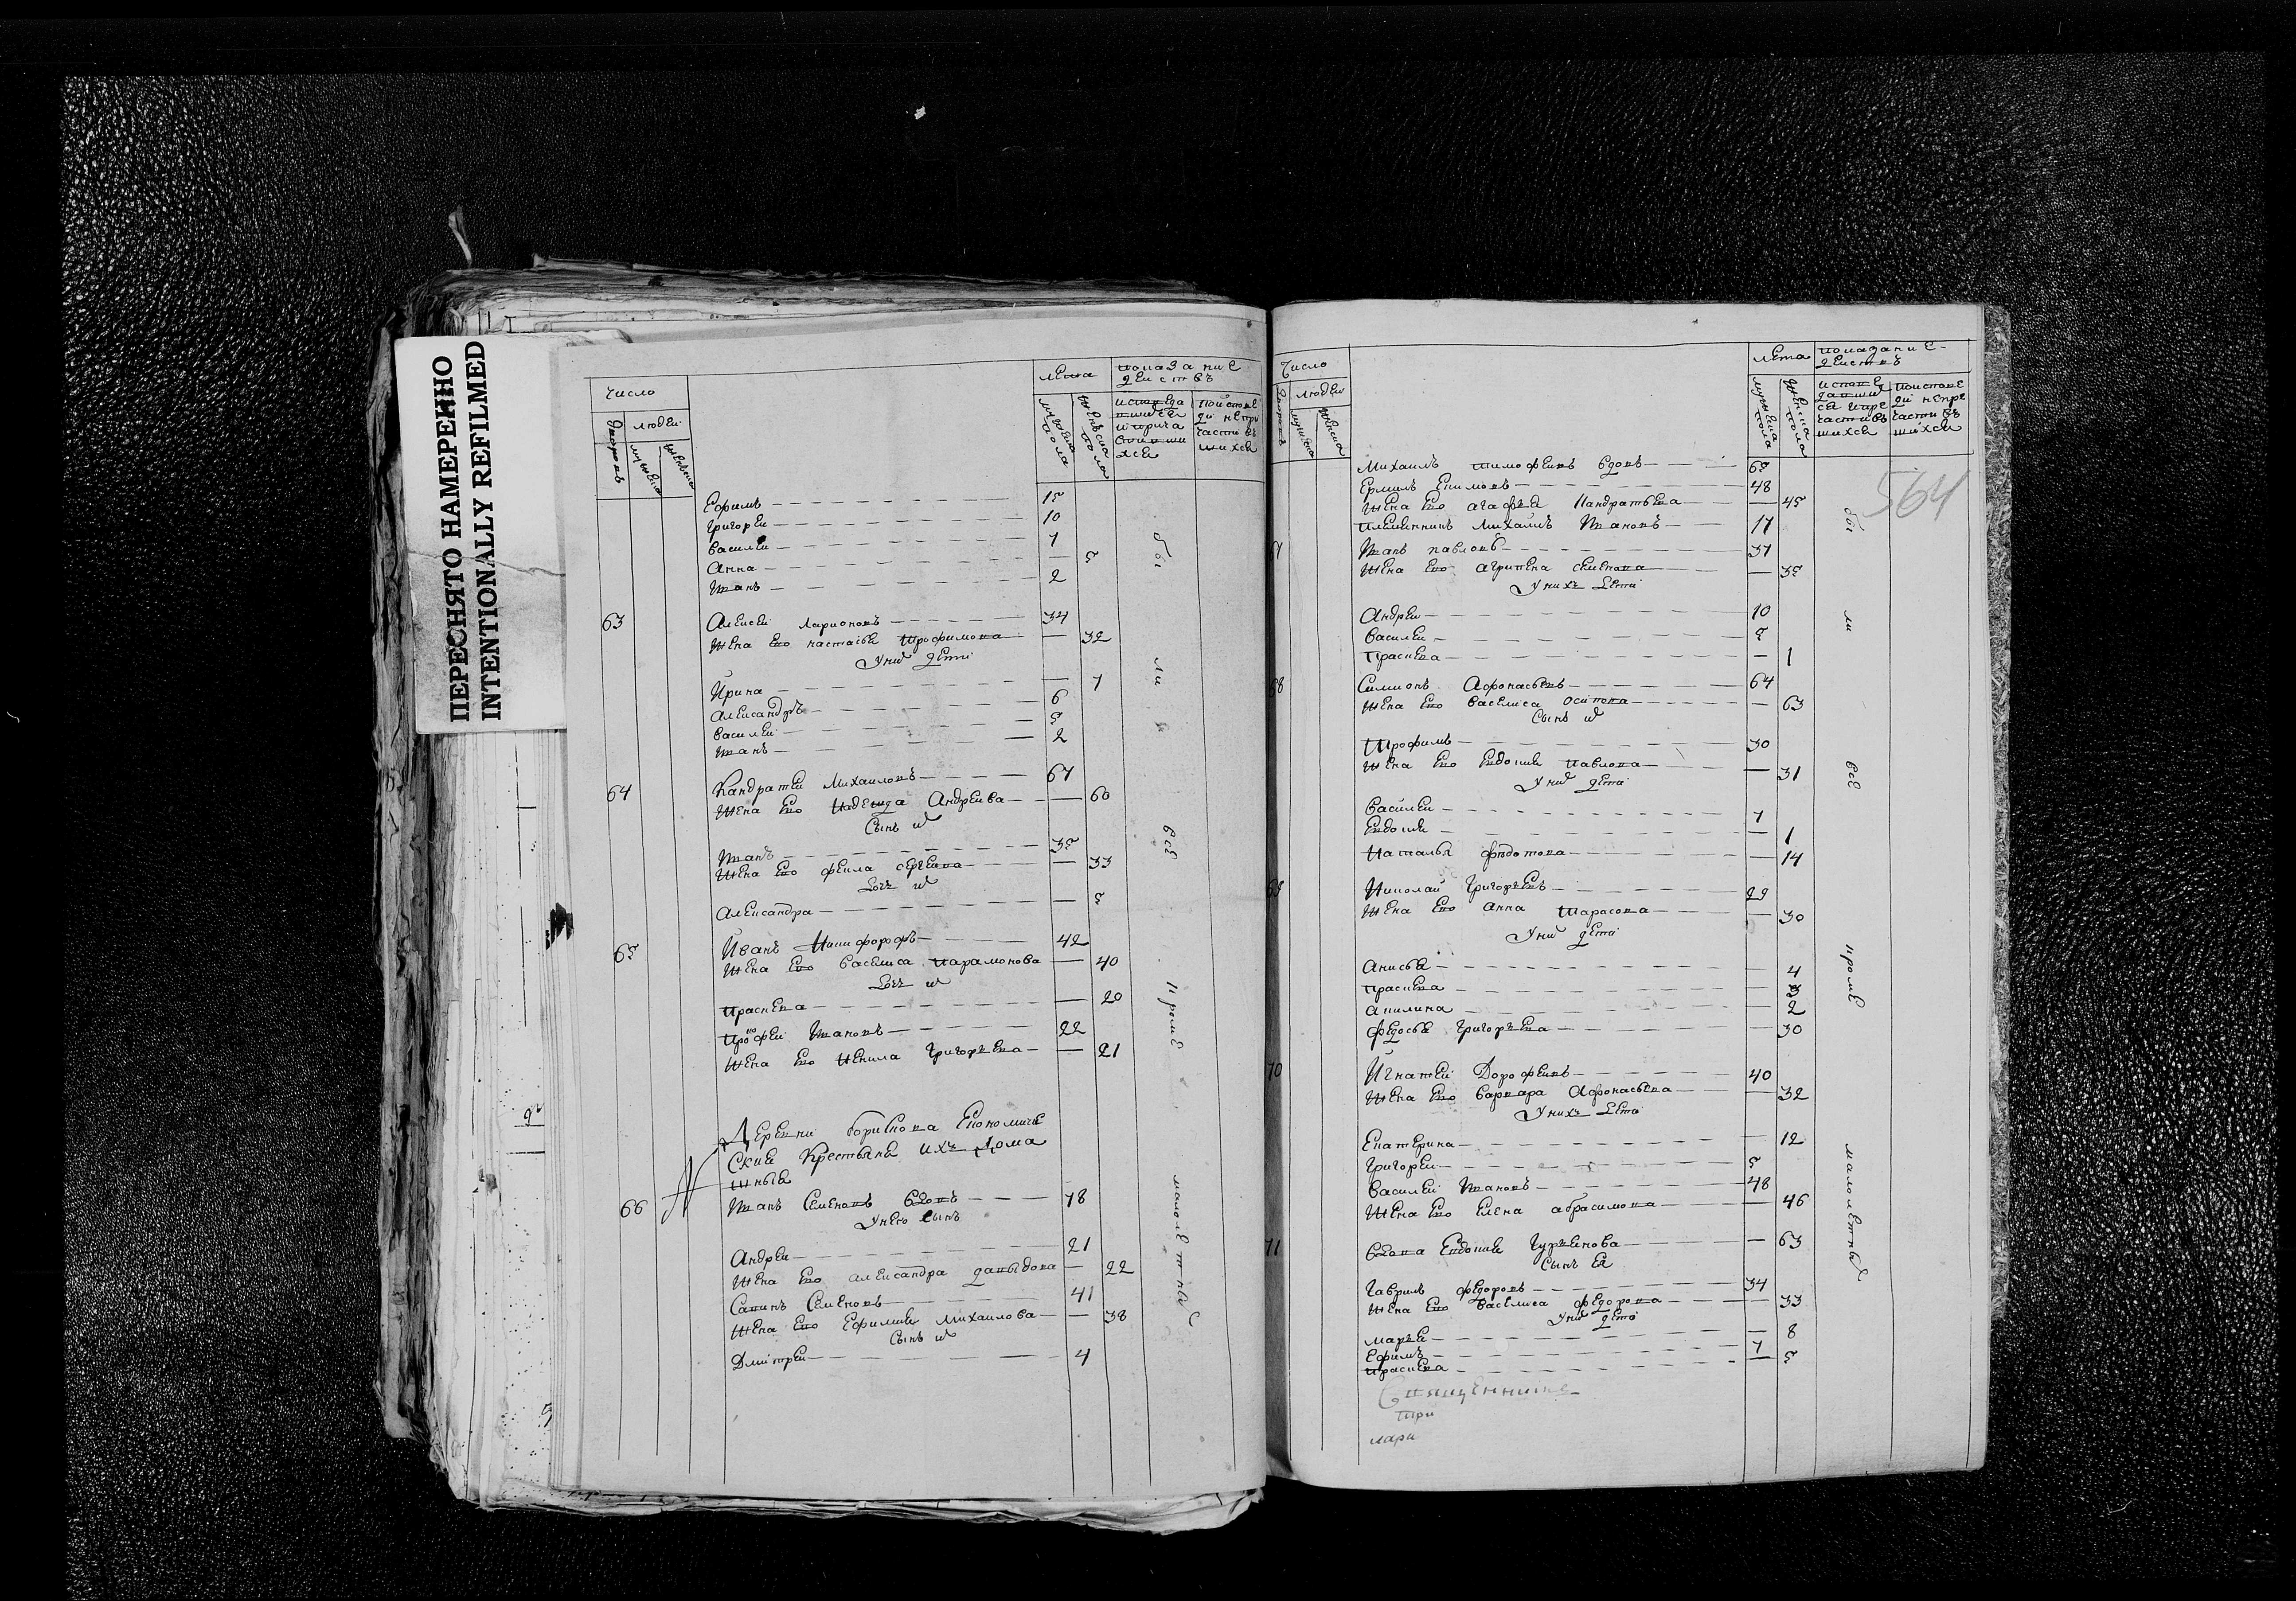 ПЕРЕСНЯТО НАМЕРЕННО
INTENTIONALLY REFILMED
Число
лета
показание
действъ
дворовъ
людеи
мужеска
женска
мужеска пола
женска пола
исповеда
вшихся
и прича
стивши
хся
поиспове
ди непри
частивъ
шихся
Ефимъ 15
Григореи 10
Василеи 7
Анна 5
Иванъ 2
63 Алексеи Ларионовъ 34
Жена ево настасья Трофимова 32
У них дети
Ирина 7
Александръ 6
Василеи 5
Иванъ 2
64 Кандратеи Михаиловъ 67
Жена ево Надежда Андреева 60
Сынъ их
Иванъ 35
Жена ево фекла сергеева 33
Дочь их
Александра 5
65 Иванъ Никифоровъ 42
Жена ево Василиса Парамонова 40
Дочь их
Прасковя 20
Прокофеи Ивановъ 22
Жена ево Ненила Григорьева 21
Деревни борисова Економиче
ские Крестьяне ихъ дома
шные
66 Иванъ Семеновъ вдовъ 78
У него сынъ
Андреи 21
Жена ево александра давыдова 22
Савинъ Семеновъ 41
Жена ево Ефимия Михаилова 38
Сынъ их
Дмитреи 4
бы
ли
все
кроме
малолетных
Число
лета
показание
действъ
дворовъ
людеи
мужеска
женска
мужеска пола
женска пола
исповед
авши
ся и при
частивъ
шихся
поиспове
ди непри
частивъ
шихся
564
Михаилъ тимофеивъ вдовъ 65
Ермилъ Екимовъ 48
Жена ево агафья Кандратьева 45
Племянникъ Михаилъ Ивановъ 17
67 Иванъ павловъ 37
Жена ево агрипена семенова 35
У нихъ Дети
Андреи 10
Василеи 5
Прасковя 1
68 Симионъ Афонасьевъ 64
Жена ево василиса осипова 63
Сынъ их
Трофимъ 30
Жена ево Евдокия Павлова 31
У них дети
Василеи 7
Евдокия 1
Наталья федотова 14
69 Николаи Григорьевъ 29
Жена ево анна Тарасова 30
У них дети
Анисья 4
прасковя 3
акилина 2
федосья Григорьева 30
70 Игнатеи Дорофеивъ 40
Жена ево варвара Афонасьева 32
У нихъ Дети
Екатерина 12
Григореи 5
Василеи Ивановъ 48
Жена ево елена абрасимова 46
71 Вдова Евдокия Гурьянова 63
Сынъ ея
Гаврилъ федоровъ 34
Жена ево василиса федорова 33
У них дети
марья 8
Ефимъ 7
прасковя 5
бы
ли
все
кроме
малолетных
Священникъ